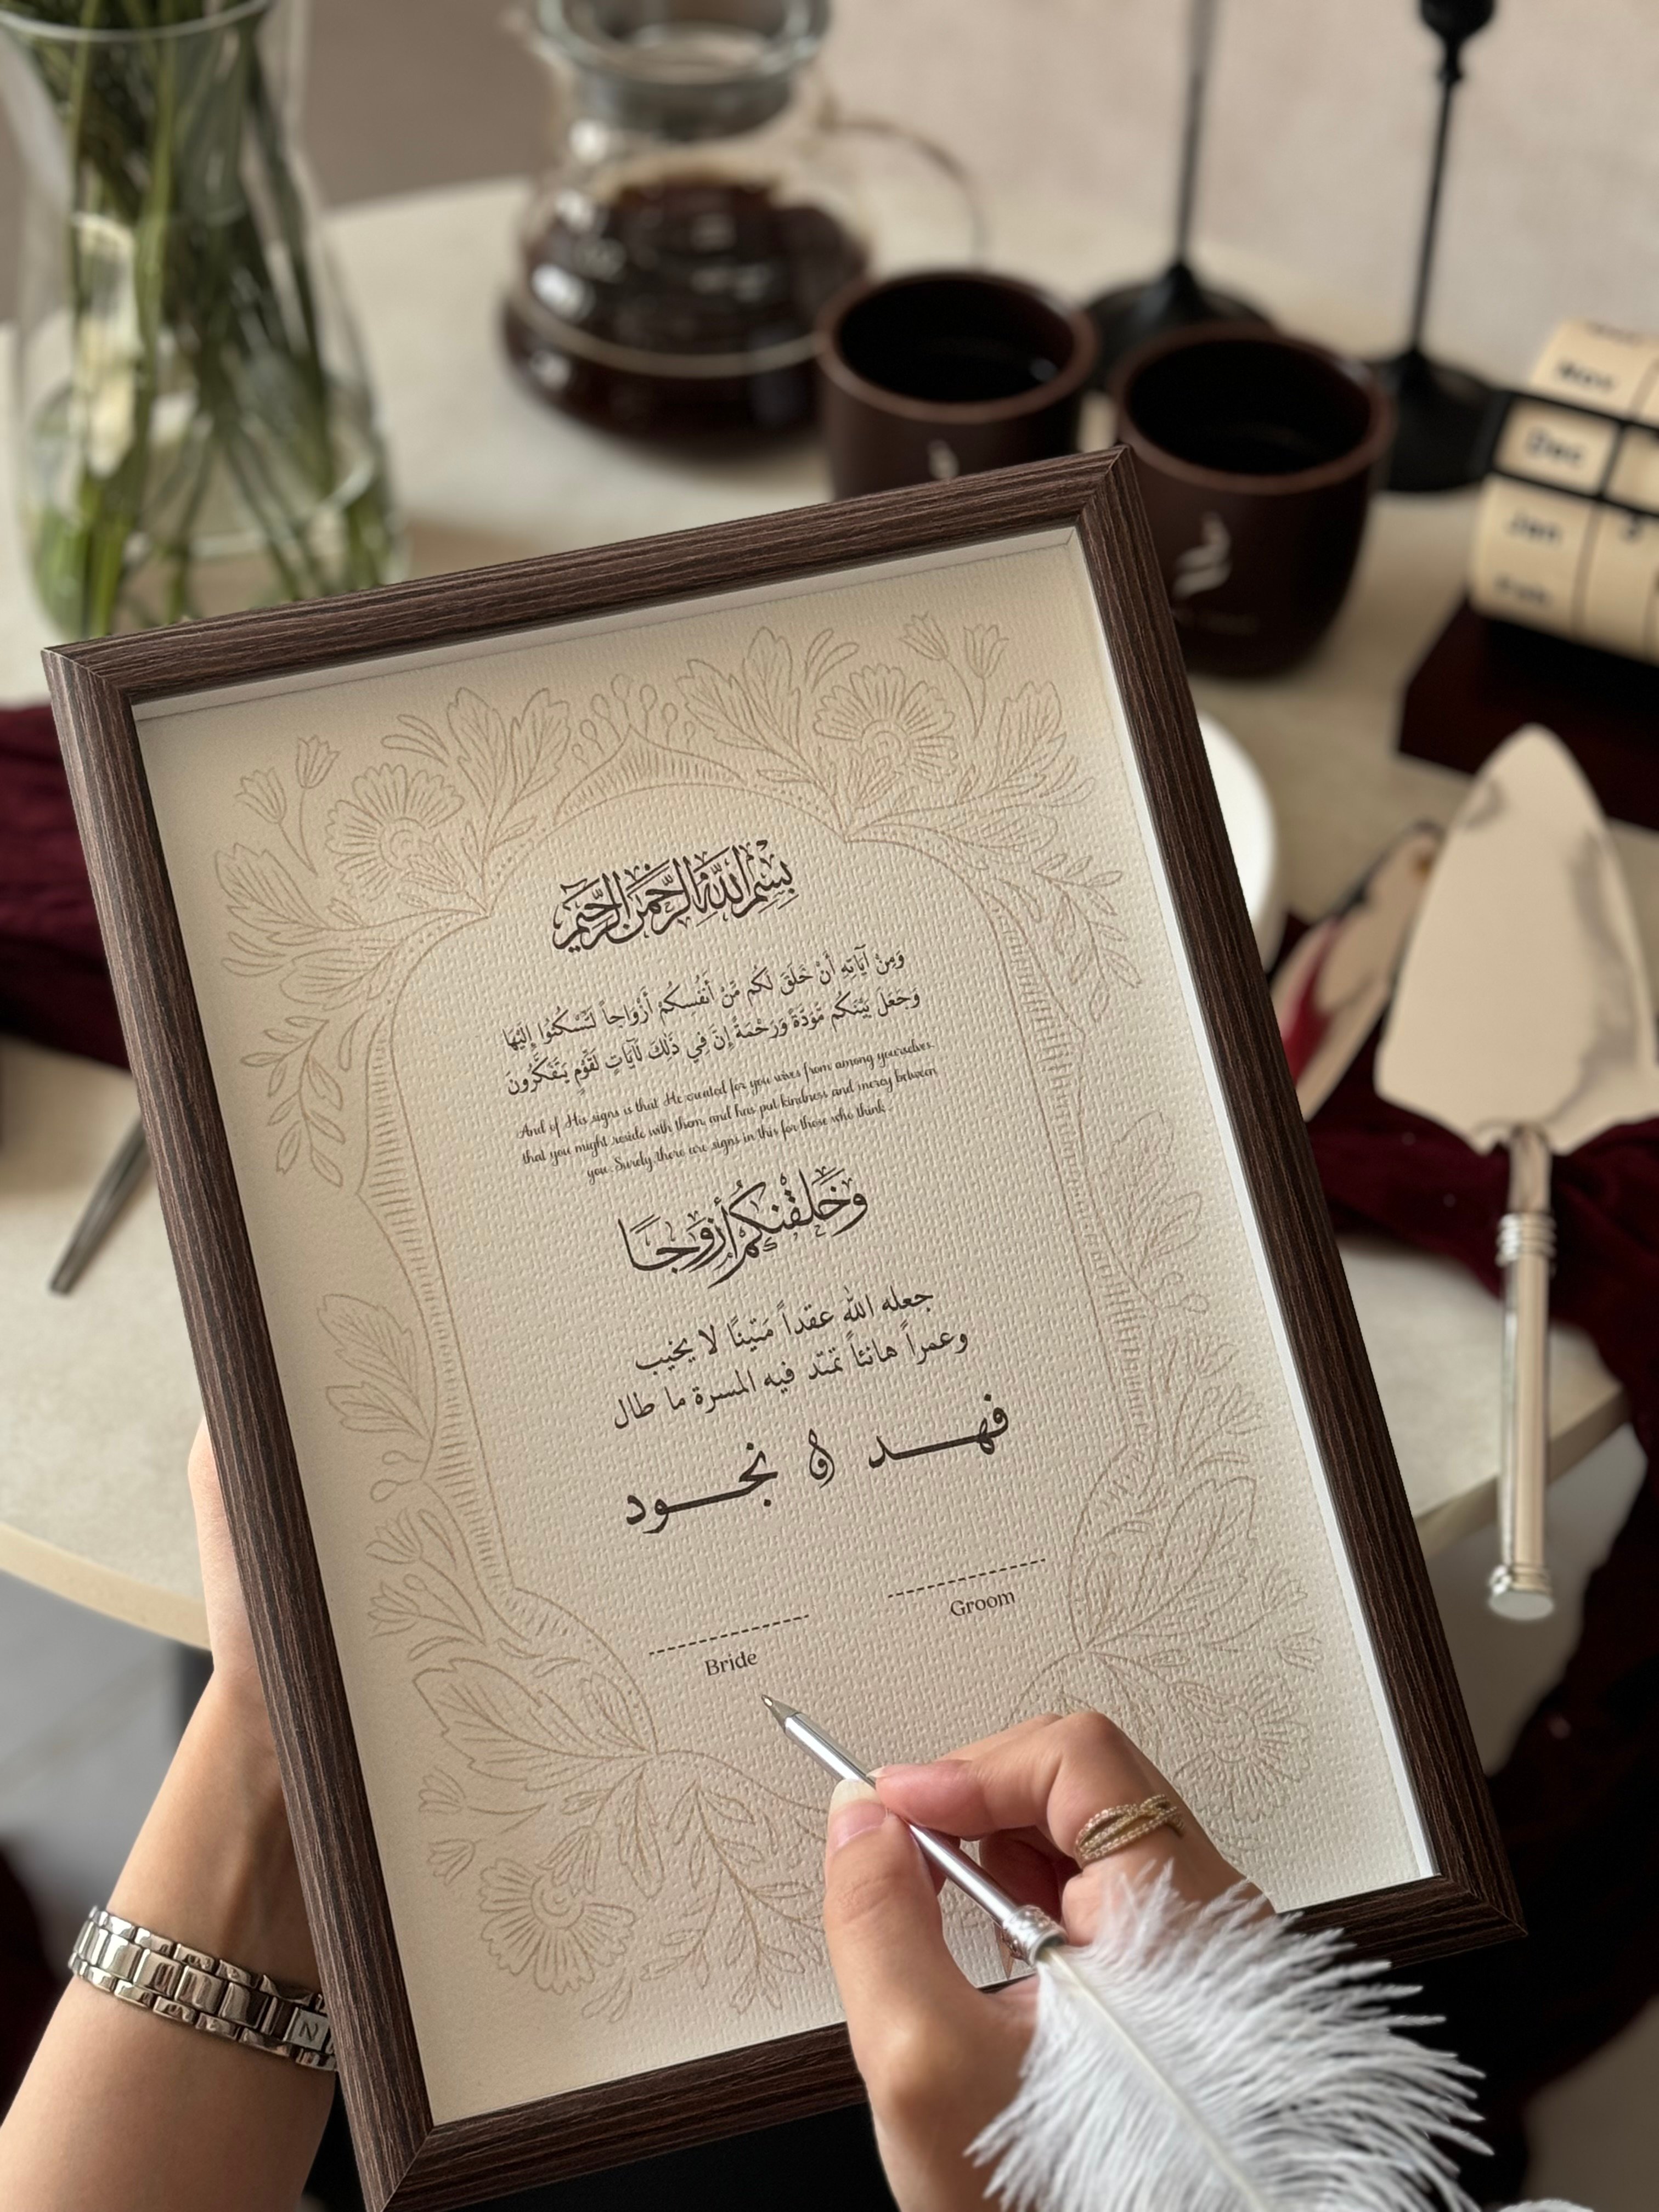 بِسْمِ اللَّهِ الرَّحْمَنِ الرَّحِيمِ
وَمِنْ آيَاتِهِ أَنْ خَلَقَ لَكُم مِّنْ أَنفُسِكُمْ أَزْوَاجاً لِّتَسْكُنُوا إِلَيْهَا
وَجَعَلَ بَيْنَكُم مَّوَدَّةً وَرَحْمَةً إِنَّ فِي ذَٰلِكَ لَآيَاتٍ لِّقَوْمٍ يَتَفَكَّرُونَ
And of His signs is that He created for you wives from among yourselves.
that you might reside with them, and has put kindness and mercy between
you. Surely, there are signs in this for those who think.
وَخَلَقْنَكُمْ أَزْوَجًا
جعله الله عقداً مَتينًا لا يخيب
وعمراً هانئاً تمتد فيه المسرة ما طال
فهد و نجود
Bride
Groom
Nov
Dec
Jan
Feb
N